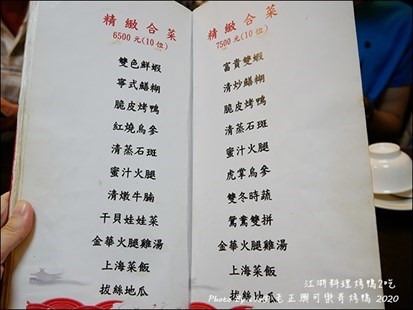 精緻合菜
6500元(10位)
雙色鮮蝦
寧式鱔糊
脆皮烤鴨
紅燒烏參
清蒸石斑
蜜汁火腿
清燉牛腩
干貝娃娃菜
金華火腿雞湯
上海菜飯
拔絲地瓜
精緻合菜
7500元(10位)
富貴雙蝦
清炒鱔糊
脆皮烤鴨
清蒸石斑
蜜汁火腿
虎掌烏參
雙冬時蔬
鴛鴦雙拼
金華火腿雞湯
上海菜飯
拔絲地瓜
江浙料理烤鴨2吃
老正興可樂哥烤鴨 2020